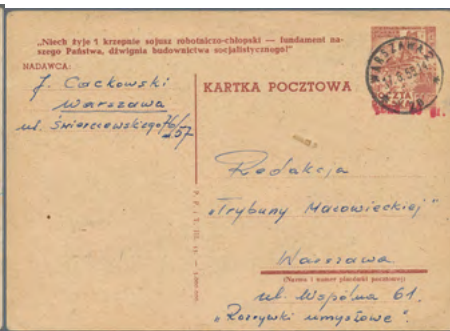 „Niech żyje i krzepnie sojusz robotniczo-chłopski — fundament na-
szego Państwa, dźwignia budownictwa socjalistycznego!"
NADAWCA:
J. Cackowski
Warszawa
ul. Świerczewskiego 76/57
KARTKA POCZTOWA
WARSZAWA 2
Redakcja
„Trybuny Mazowieckiej"
Warszawa
(Nazwa i numer placówki pocztowej)
ul. Wspólna 61.
„Rozrywki umysłowe".